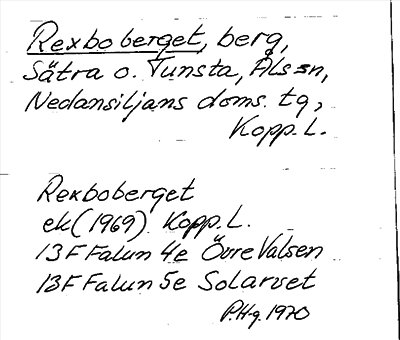 Rexboberget, berg,
Sätra o. Tunsta, Åls sn,
Nedansiljans doms. tg,
Kopp. L.
Rexboberget
ek (1969) Kopp. L.
13F Falun 4e Övre Valsen
13F Falun 5e Solarvet
P.Hg. 1970